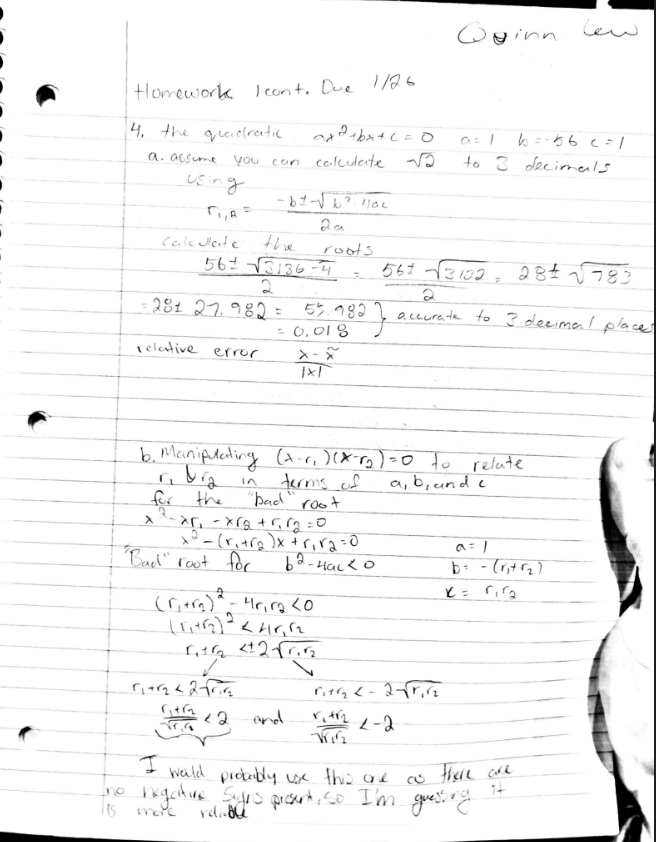 Quinn Lew
Homework 1 cont. Due 1/26
4. the quadratic ax²+bx+c=0 a=1 b=-56 c=1
a. assume you can calculate √2 to 3 decimals
using
r₁,₂ = (-b±√(b²-4ac))/(2a)
calculate the roots
(56±√(3136-4))/2 = (56±√3132)/2 = 28±√783
=28± 27.982 = 55.982 } accurate to 3 decimal places
= 0.018
relative error (x-x̃)/|x|
b. Manipulating (x-r₁)(x-r₂)=0 to relate
r₁ & r₂ in terms of a, b, and c
for the "bad" root
x²-xr₁-xr₂+r₁r₂=0
x²-(r₁+r₂)x+r₁r₂=0 a=1
"Bad" root for b²-4ac<0 b= -(r₁+r₂)
c= r₁r₂
(r₁+r₂)²-4r₁r₂<0
(r₁+r₂)²<4r₁r₂
r₁+r₂ <±2√r₁r₂
r₁+r₂<2√r₁r₂ r₁+r₂<-2√r₁r₂
(r₁+r₂)/√r₁r₂ <2 and (r₁+r₂)/√r₁r₂ <-2
I would probably use this one as there are
no negative signs present, so I'm guessing it
is more reliable